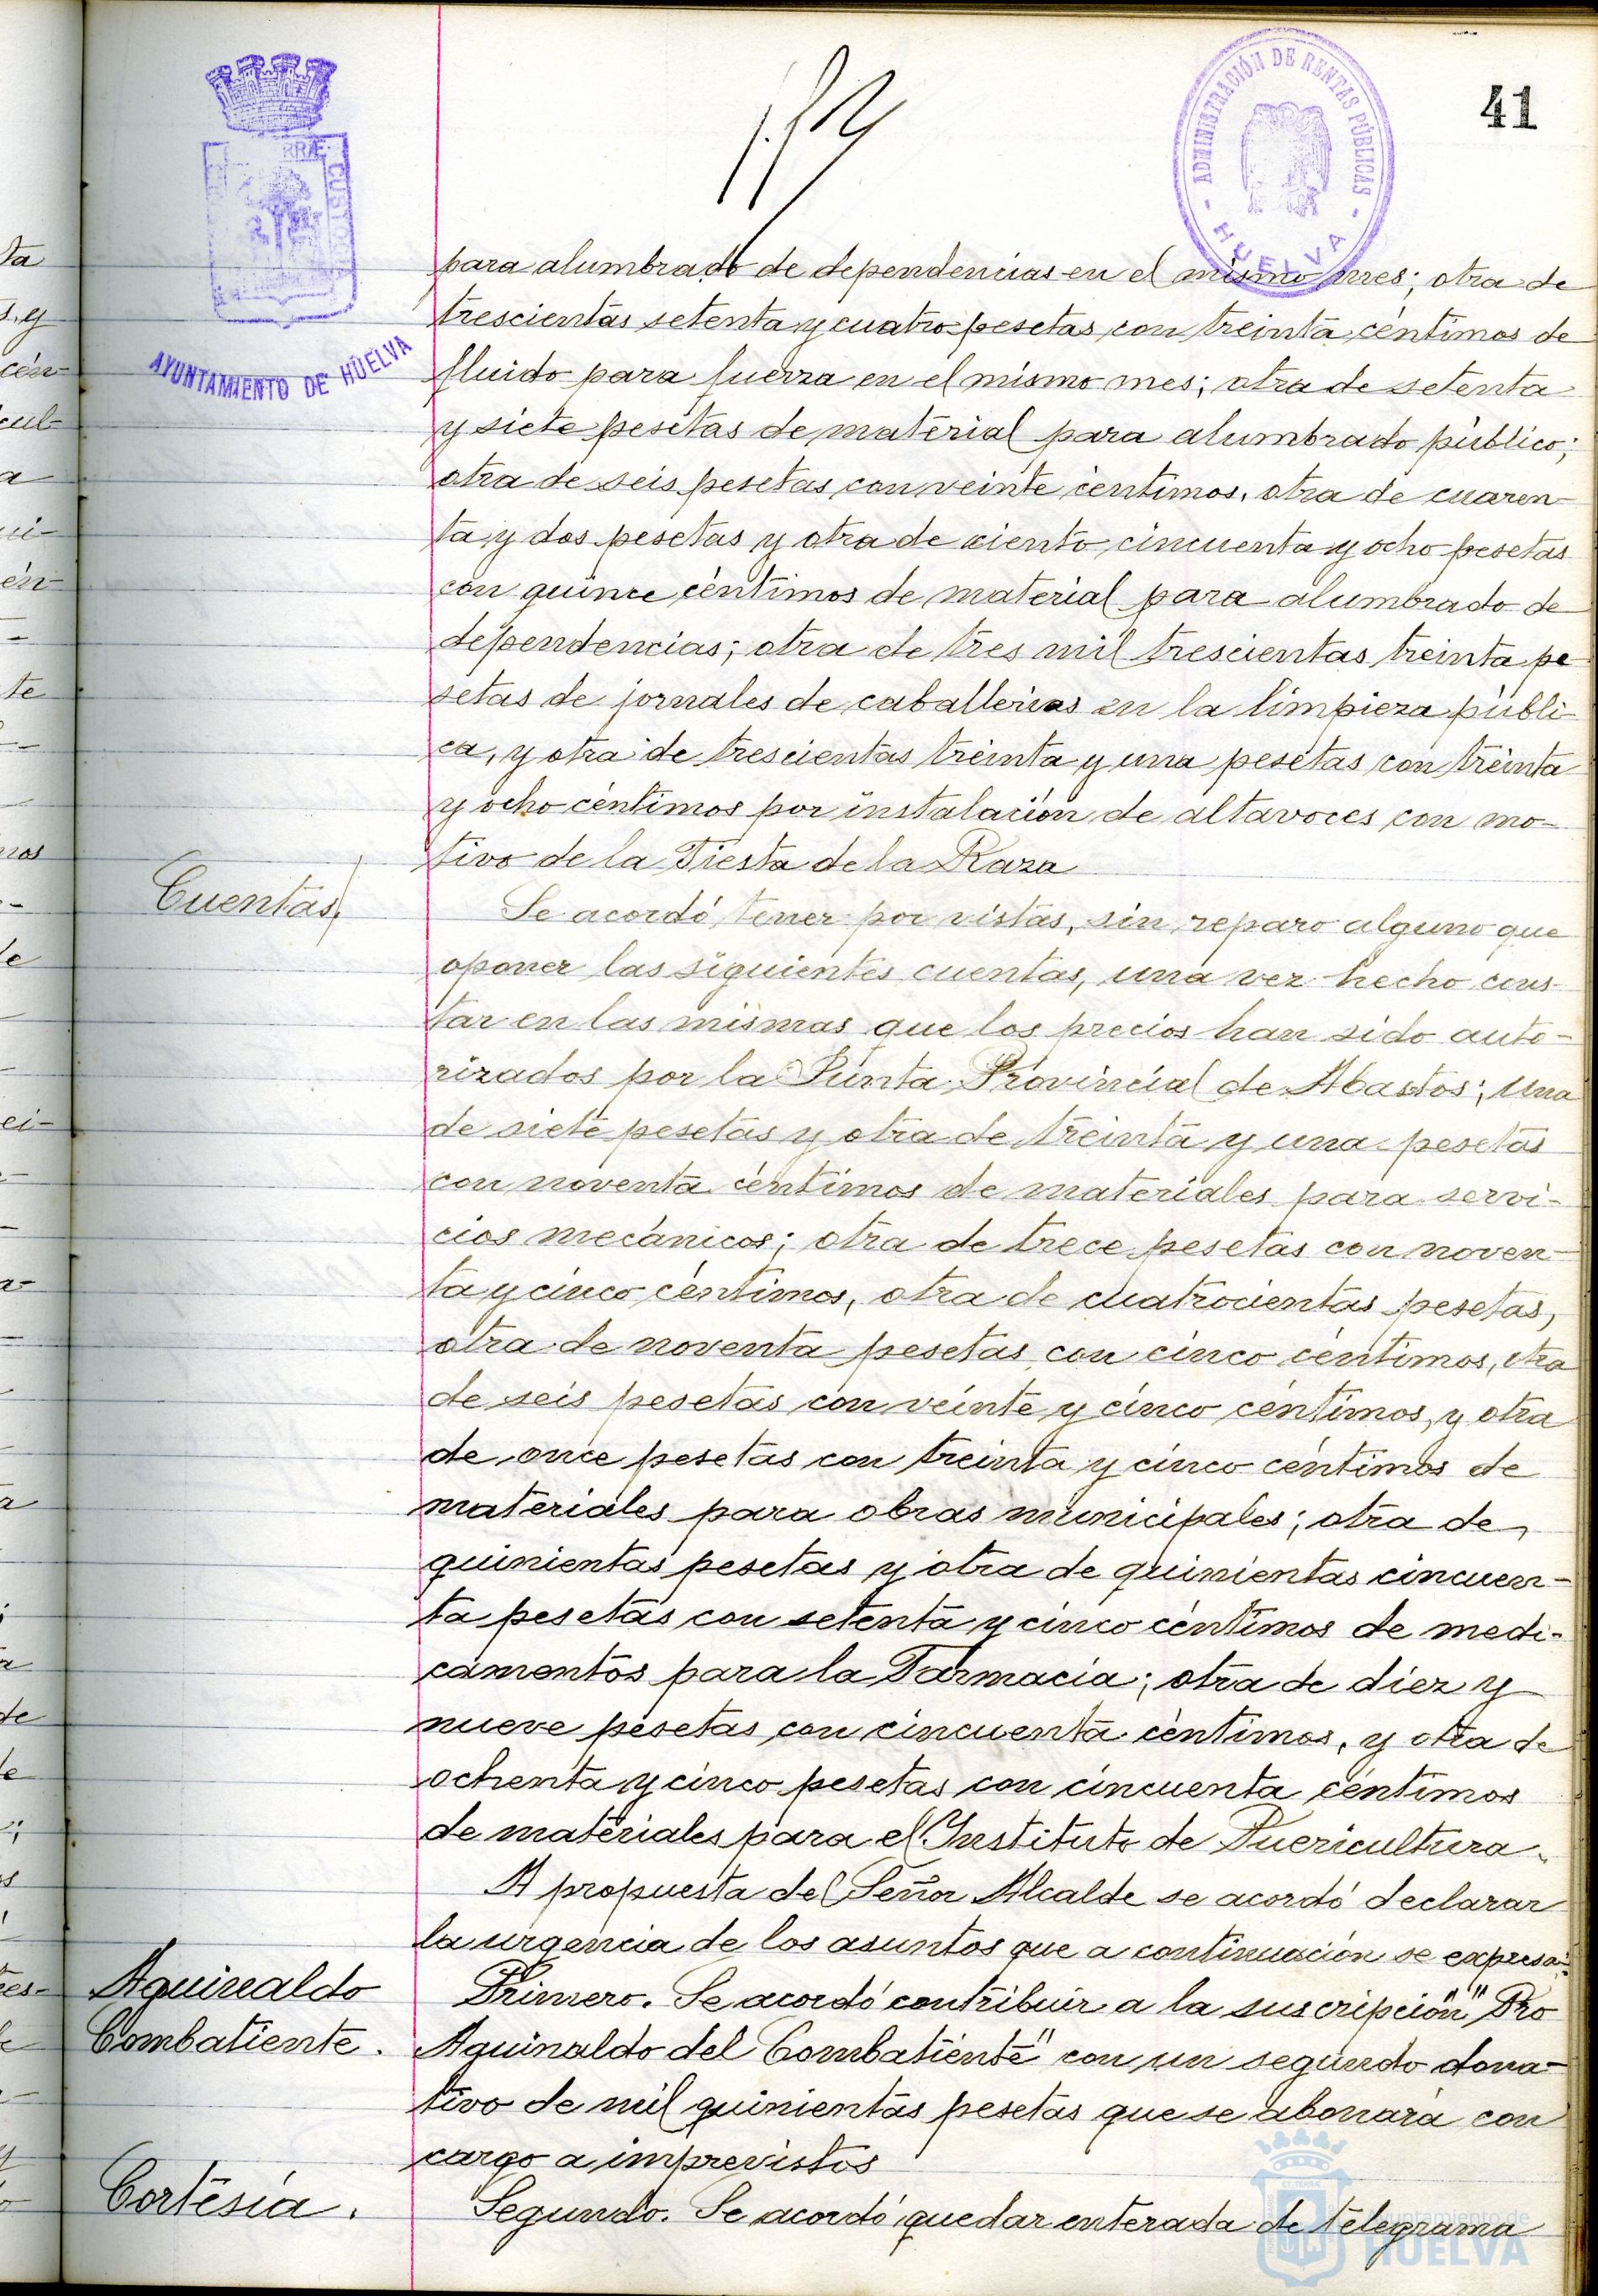 41
ADMINISTRACIÓN DE RENTAS PÚBLICAS
HUELVA
CUSTOS
AYUNTAMIENTO DE HUELVA
para alumbrado de dependencias en el mismo mes; otra de
trescientas setenta y cuatro pesetas con treinta céntimos de
fluido para fuerza en el mismo mes; otra de setenta
y siete pesetas de material para alumbrado público;
otra de seis pesetas con veinte céntimos, otra de cuaren-
ta y dos pesetas y otra de ciento cincuenta y ocho pesetas
con quince céntimos de material para alumbrado de
dependencias; otra de tres mil trescientas treinta pe
setas de jornales de caballerias en la limpieza públi-
ca, y otra de trescientas treinta y una pesetas con treinta
y ocho céntimos por instalación de altavoces con mo-
tivo de la Fiesta de la Raza
Cuentas
Se acordó tener por vistas, sin reparo alguno que
oponer las siguientes cuentas, una vez hecho cons-
tar en las mismas que los precios han sido auto-
rizados por la Junta Provincial de Abastos; una
de siete pesetas y otra de treinta y una pesetas
con noventa céntimos de materiales para servi-
cios mecánicos; otra de trece pesetas con noven-
ta y cinco céntimos, otra de cuatrocientas pesetas,
otra de noventa pesetas con cinco céntimos, otra
de seis pesetas con veinte y cinco céntimos, y otra
de once pesetas con treinta y cinco céntimos de
materiales para obras municipales; otra de
quinientas pesetas y otra de quinientas cincuen-
ta pesetas con setenta y cinco céntimos de medi-
camentos para la Farmacia; otra de diez y
nueve pesetas con cincuenta céntimos, y otra de
ochenta y cinco pesetas con cincuenta céntimos
de materiales para el Instituto de Puericultura.
A propuesta del Señor Alcalde se acordó declarar
la urgencia de los asuntos que a continuación se expresan:
Aguinaldo
Combatiente.
Primero. Se acordó contribuir a la suscripción "Pro
Aguinaldo del Combatiente" con un segundo dona-
tivo de mil quinientas pesetas que se abonará con
cargo a imprevistos
Cortesía.
Segundo. Se acordó quedar enterada de telegrama
Ayuntamiento de
HUELVA